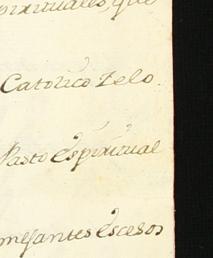 pirituales, que
Catolico Zelo.
Pasto Espiritual
mejantes Escesos